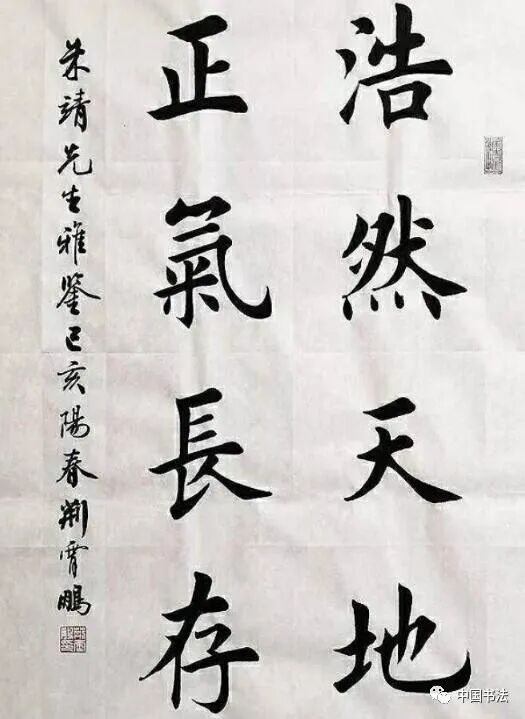 浩然天地
正氣長存
朱靖先生雅鑒己亥陽春荆霄鵬
中国书法